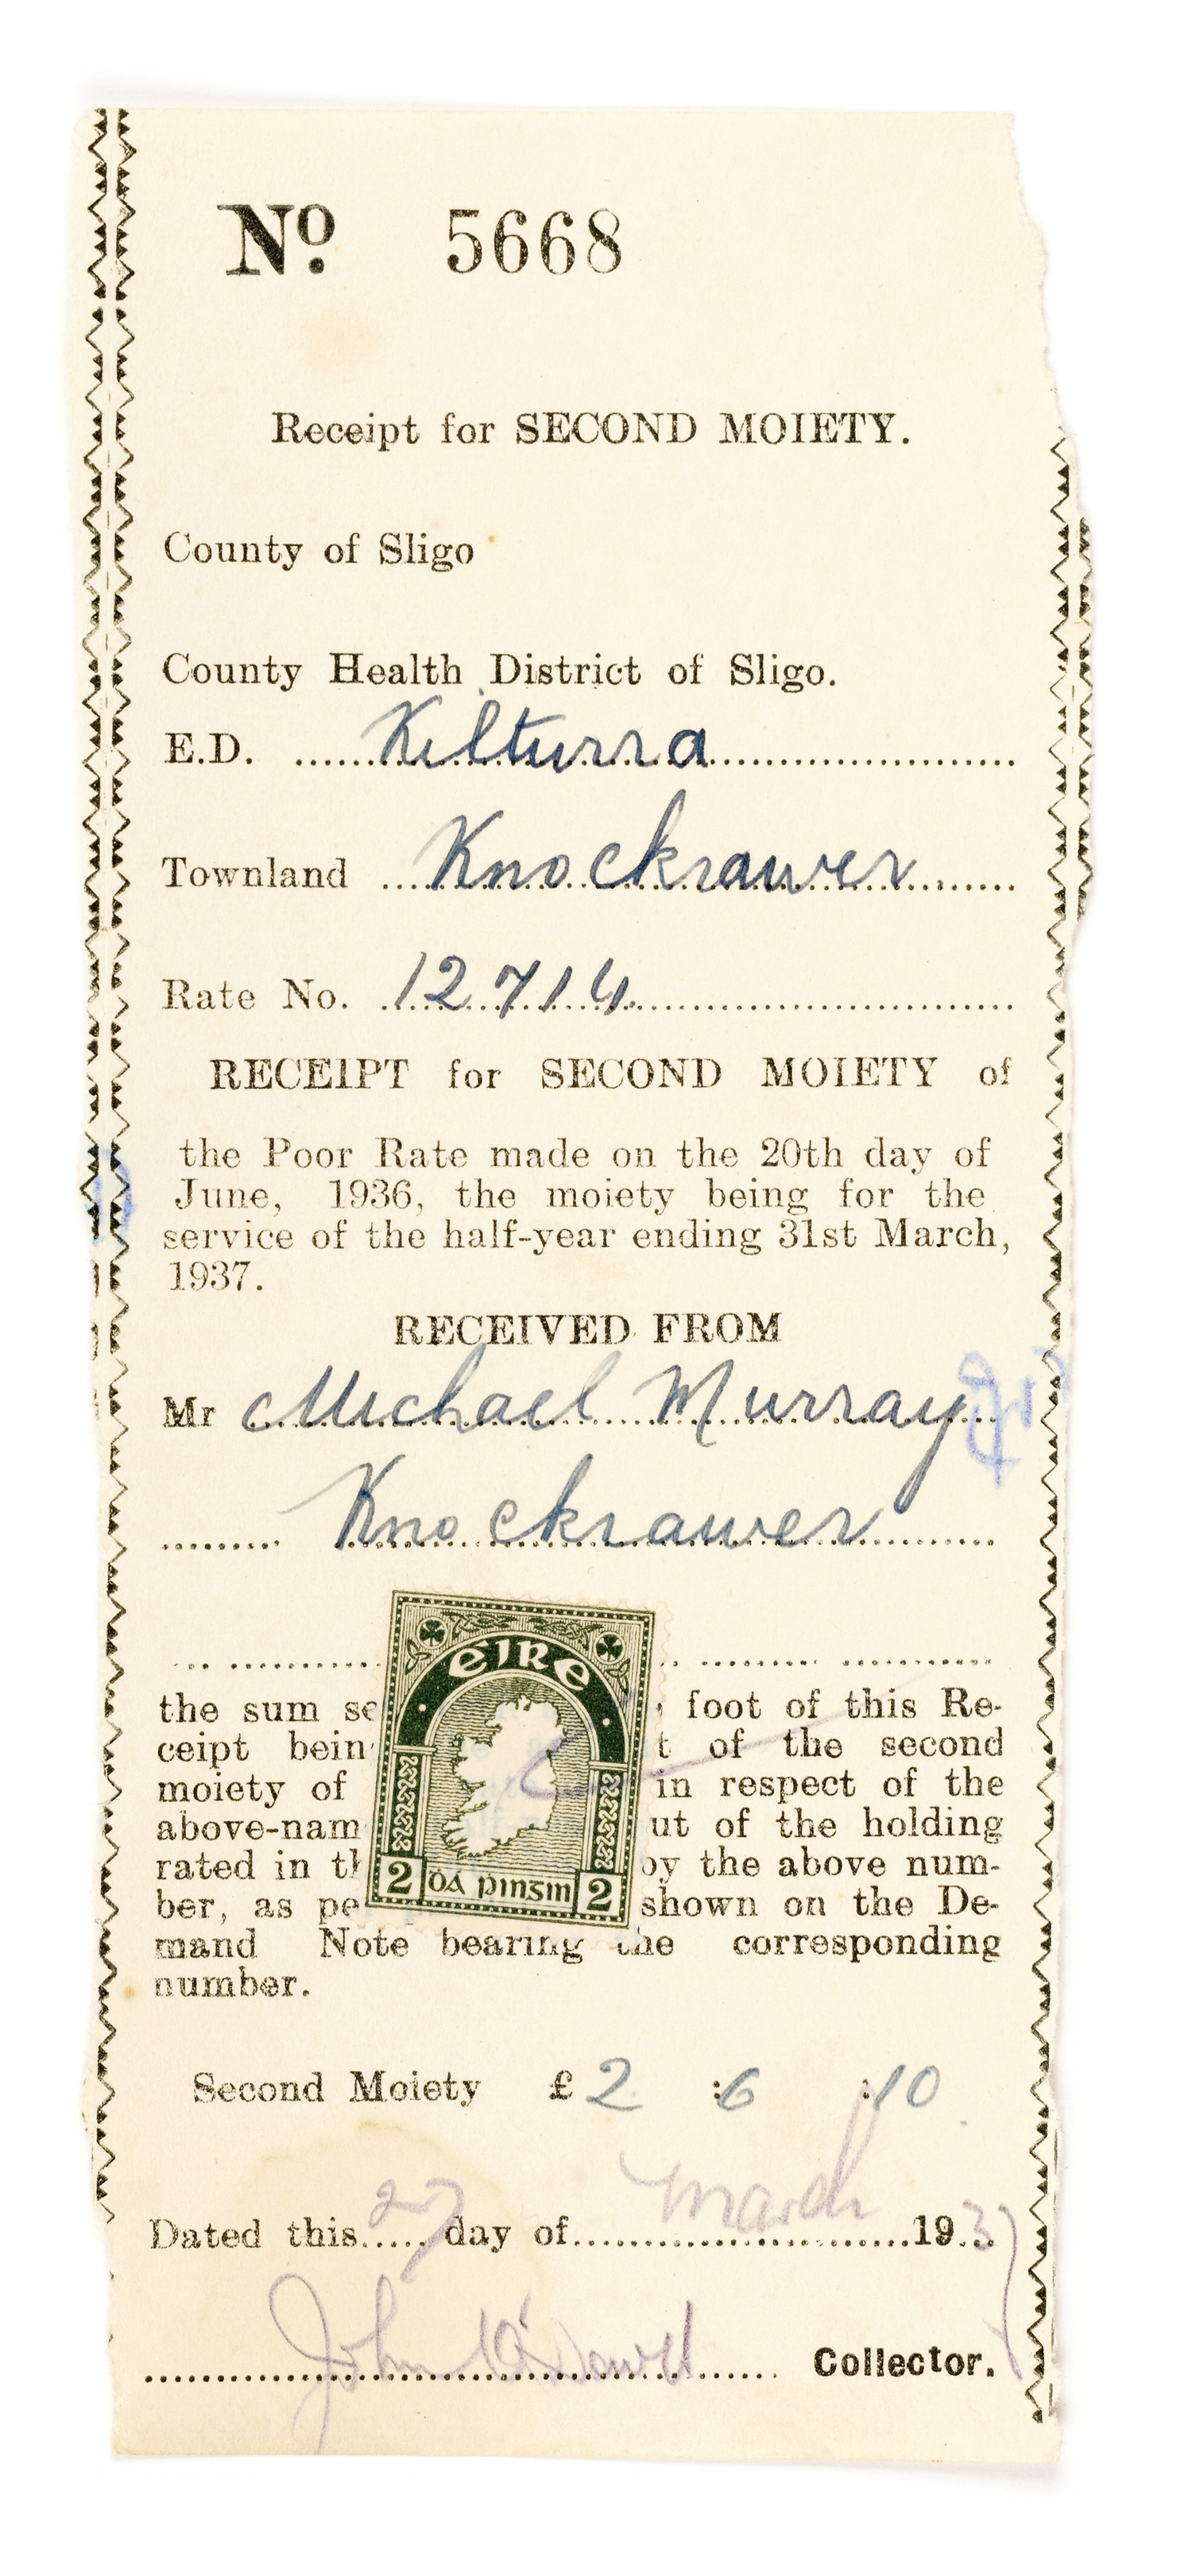 No. 5668
Receipt for SECOND MOIETY.
County of Sligo
County Health District of Sligo.
E.D. Kilturra
Townland Knockrawer
Rate No. 12714
RECEIPT for SECOND MOIETY of
the Poor Rate made on the 20th day of
June, 1936, the moiety being for the
service of the half-year ending 31st March,
1937.
RECEIVED FROM
Mr Michael Murray
Knockrawer
éire
2 Dá pingin 2
the sum foot of this Re-
ceipt of the second
moiety of in respect of the
above-nam of the holding
rated in the above num-
ber, as shown on the De-
mand Note bearing the corresponding
number.
Second Moiety £2 : 6 : 10
Dated this 27 day of March 1937
John Collector.